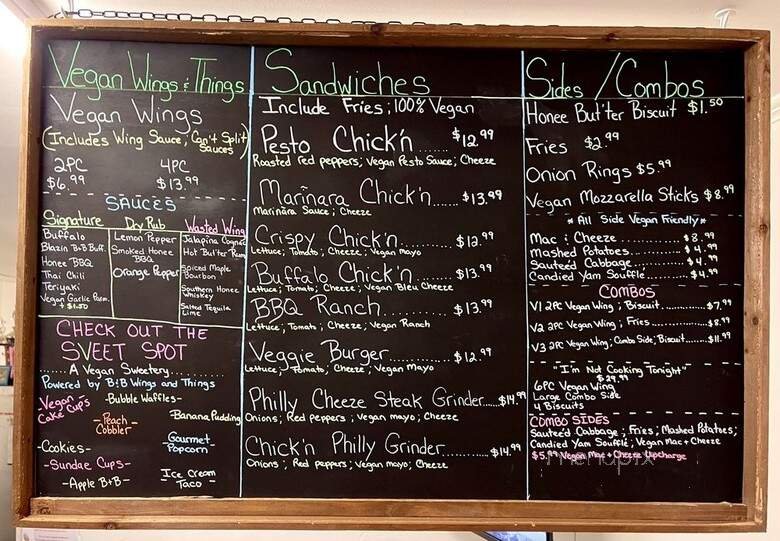 Vegan Wings & Things
Vegan Wings
(Includes Wing Sauce, Can't Split Sauces)
2PC 4PC
$6.99 $13.99
SAUCES
Signature
Buffalo
Blazin B&B Buff.
Honee BBQ
Thai Chili
Teriyaki
Vegan Garlic Parm.
+ $1.50
Dry Rub
Lemon Pepper
Smoked Honee
BBQ
Orange Pepper
Wasted Wing
Jalapina Cognac
Hot But'ter Rum
Spiced Maple
Bourbon
Southern Honee
Whiskey
Salted Tequila
Lime
CHECK OUT THE
SVEET SPOT
......A Vegan Sweetery.........
Powered by B&B Wings and Things
-Vegan Cake Cups
-Bubble Waffles-
-Peach Cobbler-
-Banana Pudding-
-Cookies-
-Gourmet Popcorn-
-Sundae Cups-
-Apple B&B-
-Ice Cream Taco-
Sandwiches
Include Fries; 100% Vegan
Pesto Chick'n ....... $12.99
Roasted red peppers; Vegan Pesto Sauce; Cheeze
Marinara Chick'n ....... $13.99
Marinara Sauce; Cheeze
Crispy Chick'n........... $12.99
Lettuce; Tomato; Cheeze; Vegan Mayo
Buffalo Chick'n........... $13.99
Lettuce; Tomato; Cheeze; Vegan Bleu Cheeze
BBQ Ranch............... $13.99
Lettuce; Tomato; Cheeze; Vegan Ranch
Veggie Burger............. $12.99
Lettuce; Tomato; Cheeze; Vegan Mayo
Philly Cheeze Steak Grinder......$14.99
Onions; Red peppers; Vegan mayo; Cheeze
Chick'n Philly Grinder........$14.99
Onions; Red peppers; Vegan mayo; Cheeze
Sides / Combos
Honee But'ter Biscuit $1.50
Fries $2.99
Onion Rings $5.99
Vegan Mozzarella Sticks $8.99
* All Side Vegan Friendly *
Mac & Cheeze $8.99
Mashed Potatoes $4.99
Sauteéd Cabbage $4.99
Candied Yam Souffle $4.99
COMBOS
V1 2PC Vegan Wing; Biscuit...............$7.99
V2 2PC Vegan Wing; Fries...............$8.99
V3 2PC Vegan Wing; Combo Side; Biscuit......$11.99
"I'm Not Cooking Tonight"
$29.99
6PC Vegan Wing
Large Combo Side
4 Biscuits
COMBO SIDES
Sauteéd Cabbage; Fries; Mashed Potatoes;
Candied Yam Soufflé; Vegan Mac & Cheeze
$5.99 Vegan Mac & Cheeze Upcharge
menupix